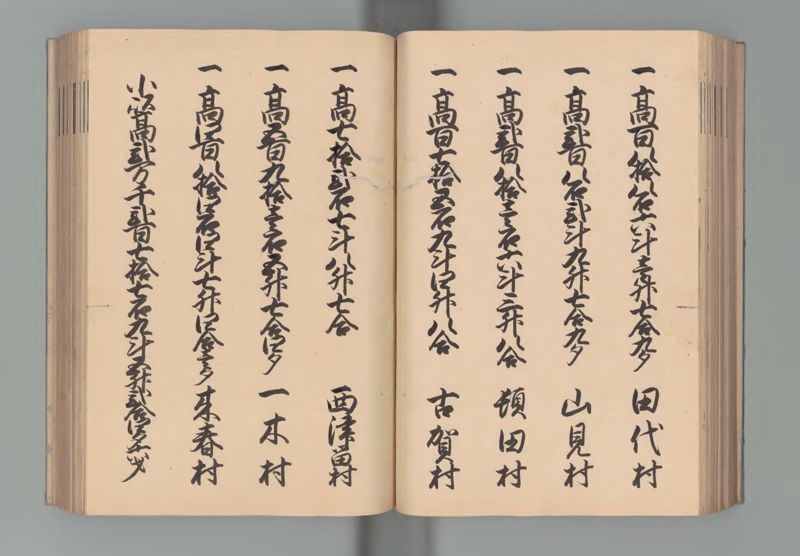 一高百八拾八石六斗壱升七合九夕 田代村
一高弐百八石弐斗九升七合九夕 山見村
一高弐百八拾壱石六斗三升八合 頓田村
一高百七拾五石九斗四升八合 古賀村
一高七拾弐石七斗八升七合 西津留村
一高五百九拾壱石五升七合四夕 一木村
一高四百八拾四石四斗七升四合壱夕 来春村
小以高弐万千弐百七拾七石九斗五升弐合四夕